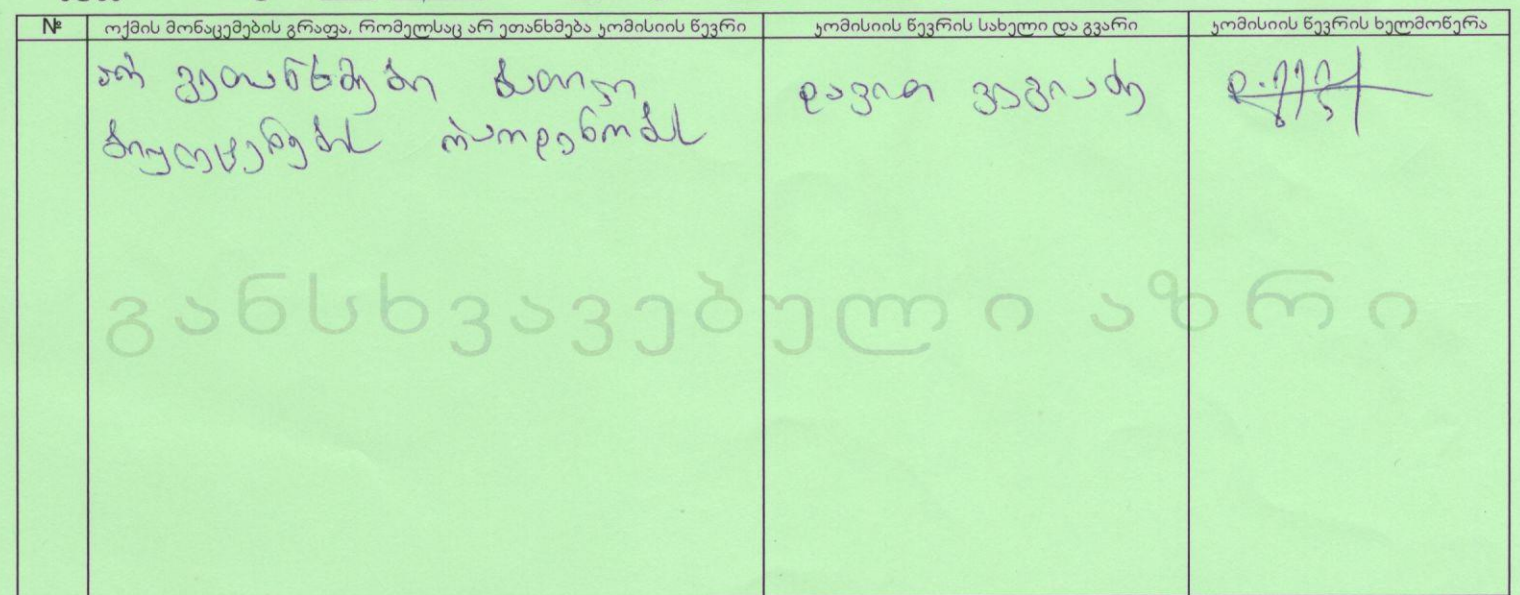 № ოქმის მონაცემების გრაფა, რომელსაც არ ეთანხმება კომისიის წევრი კომისიის წევრის სახელი და გვარი კომისიის წევრის ხელმოწერა
არ ვეთანხმები ბათილი
ბიულეტენების რაოდენობას
დავით
განსხვავებული აზრი